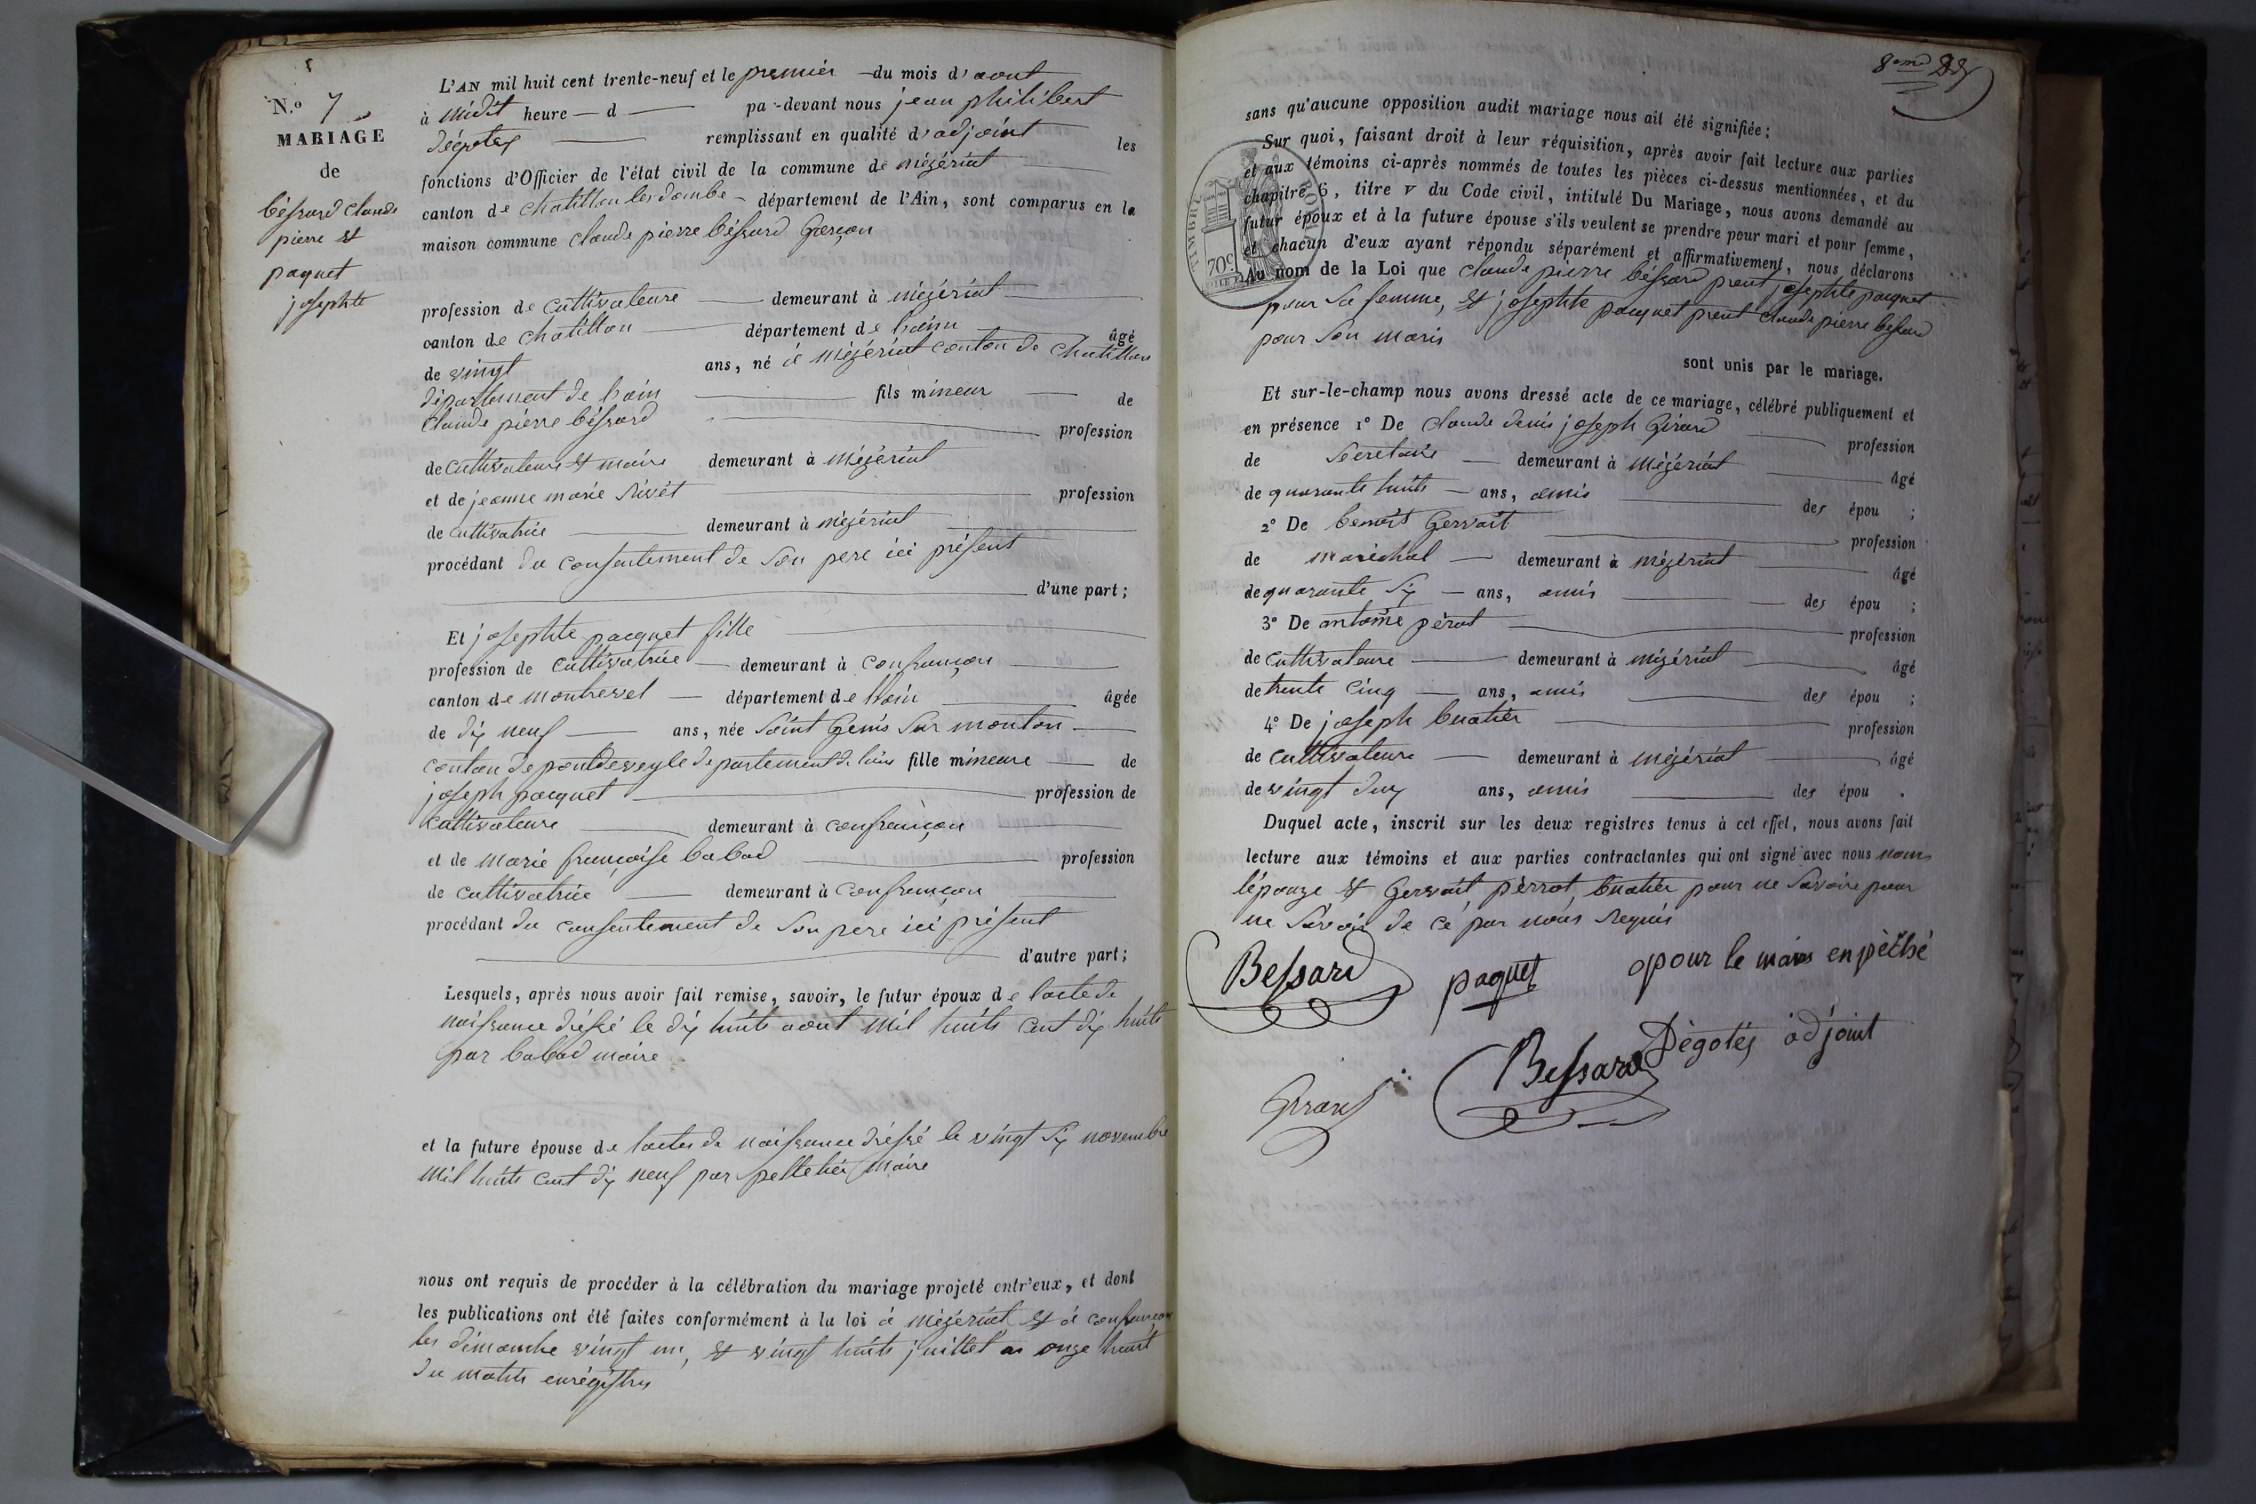 N.º 7
MARIAGE
de
béssard claude
pierre et
paquet
josephte
L'AN mil huit cent trente-neuf et le premiér du mois d'aout
à midit heure d pa -devant nous jean philibert
dégotex remplissant en qualité d'adjoint les
fonctions d'Officier de l'état civil de la commune de mézériat
canton de chatillon les dombe département de l'Ain, sont comparus en la
maison commune claude pierre béssard garçon
profession de cultivateure demeurant à mézériat
canton de chatillon département de l'ain âgé
de vingt ans, né à mézériat canton de chatillon
département de l'ain fils mineur de
claude piérre béssard profession
de cultivateure et maire demeurant à mézériat
et de jeanne marie rivét profession
de cultivatrice demeurant à mézériat
procédant du consentement de son pere ici présent
d'une part;
Et josephte pacquet fille
profession de cultivatrice demeurant à confrançon
canton de montrevel département de l'ain âgée
de dix neuf ans, née Saint genis sur monton
canton de pontdeveyle departement de l'ain fille mineure de
joseph pacquet profession de
cultivateure demeurant à confrançon
et de marie françoise babad profession
de cultivatrice demeurant à confrançon
procédant du consentement de son pere ici présent
d'autre part;
Lesquels, après nous avoir fait remise, savoir, le futur époux de l'acte de
naissance dréssé le dix huits aout mil huits cent dix huits
par babad maire
et la future épouse de l'actes de naissance dréssé le vingt six novembre
mil huits cent dix neuf par pelletiér maire
nous ont requis de procéder à la célébration du mariage projeté entr'eux, et dont
les publications ont été faites conformément à la loi à mézériat et à confrançon
les dimanche vingt un, et vingt huits juillet a onze heure
du matin enrégistres
8eme
sans qu'aucune opposition audit mariage nous ait été signifiée;
Sur quoi, faisant droit à leur réquisition, après avoir fait lecture aux parties
et aux témoins ci-après nommés de toutes les pièces ci-dessus mentionnées, et du
chapitre 6, titre v du Code civil, intitulé Du Mariage, nous avons demandé au
futur époux et à la future épouse s'ils veulent se prendre pour mari et pour femme,
et chacun d'eux ayant répondu séparément et affirmativement, nous déclarons
Au nom de la Loi que claude pierre béssard prent josephte pacquet
pour sa femme, et josephte pacquet prent claude pierre bessard
pour son maris
sont unis par le mariage.
TIMBRE ROYAL
70c
Et sur-le-champ nous avons dressé acte de ce mariage, célébré publiquement et
en présence 1º De claude denis joseph girard profession
de Secretaire demeurant à mézériat âgé
de quarante huits ans, amis des épou ;
2º De benoit gervait profession
de maréchal demeurant à mézériat âgé
de quarante six ans, amis des épou ;
3º De antoine pérat profession
de cultivateure demeurant à mézériat âgé
de trente cinq ans, amis des épou ;
4º De joseph buatier profession
de cultivateure demeurant à mézériat âgé
de vingt deux ans, amis des épou .
Duquel acte, inscrit sur les deux registres tenus à cet effet, nous avons fait
lecture aux témoins et aux parties contractantes qui ont signé avec nous nom
l'épouze et gervait, pérrat, buatier pour ne savoire pour
ne savoir de ce par nous requis
Bessard paquet pour le maire enpèché
Bessard Dègotéx adjoint
Girard